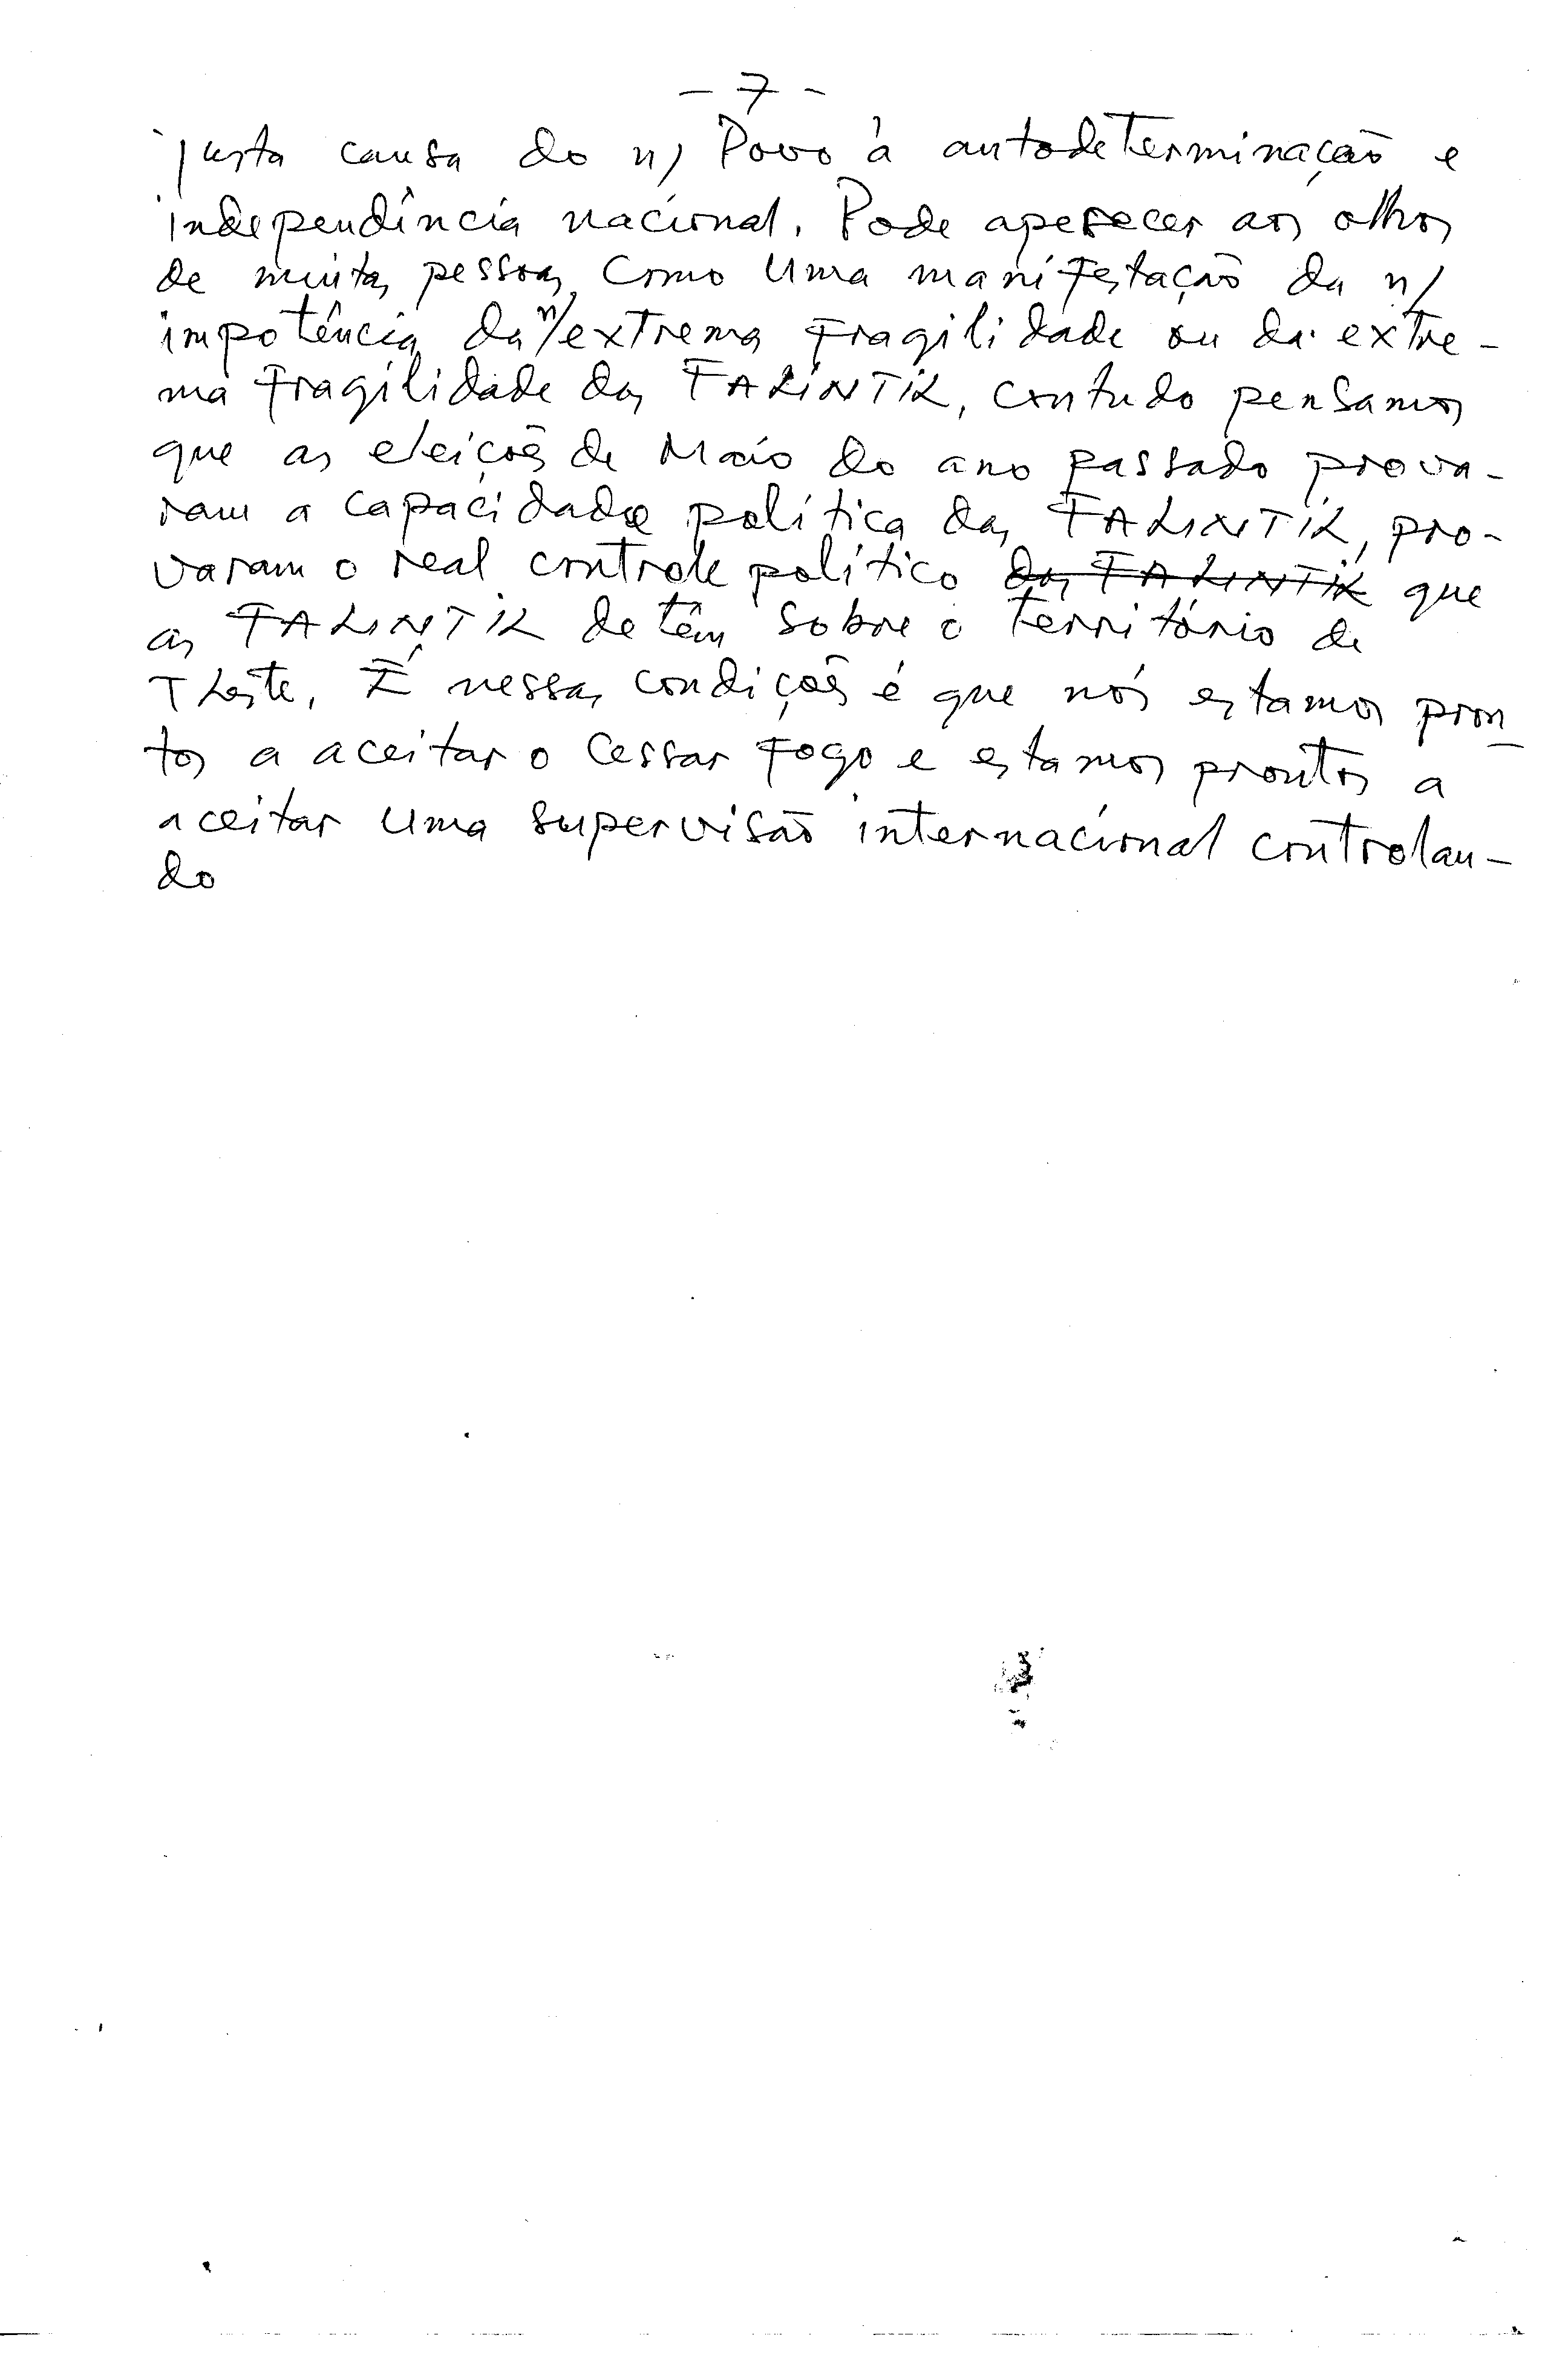 - 7 -
justa causa do n/ Povo à autodeterminação e
independência nacional. Pode aperecer aos olhos
de muitas pessoas como uma manifestação da n/
impotência da n/ extrema fragilidade ou da extre-
ma fragilidade das FALINTIL, contudo pensamos
que as eleições de Maio do ano passado prova-
ram a capacidade política das FALINTIL, pro-
varam o real controle político das FALINTIL que
as FALINTIL detêm sobre o território de
T Leste. É nessas condições é que nós estamos pron-
tos a aceitar o cessar fogo e estamos prontos a
aceitar uma supervisão internacional controlan-
do